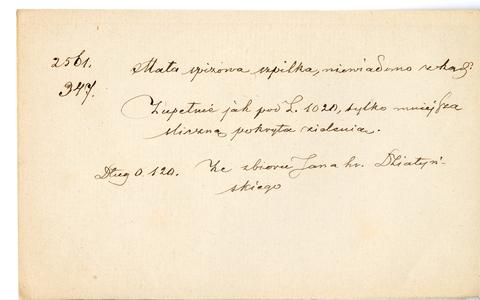 2561. Mała spiżowa szpilka, niewiadomo zkąd?
347.
Zupełnie jak pod L. 1020, tylko mniejsza
śliczną pokryta zielenią.
Dług 0.120. Ze zbioru Jana hr. Działyń-
skiego